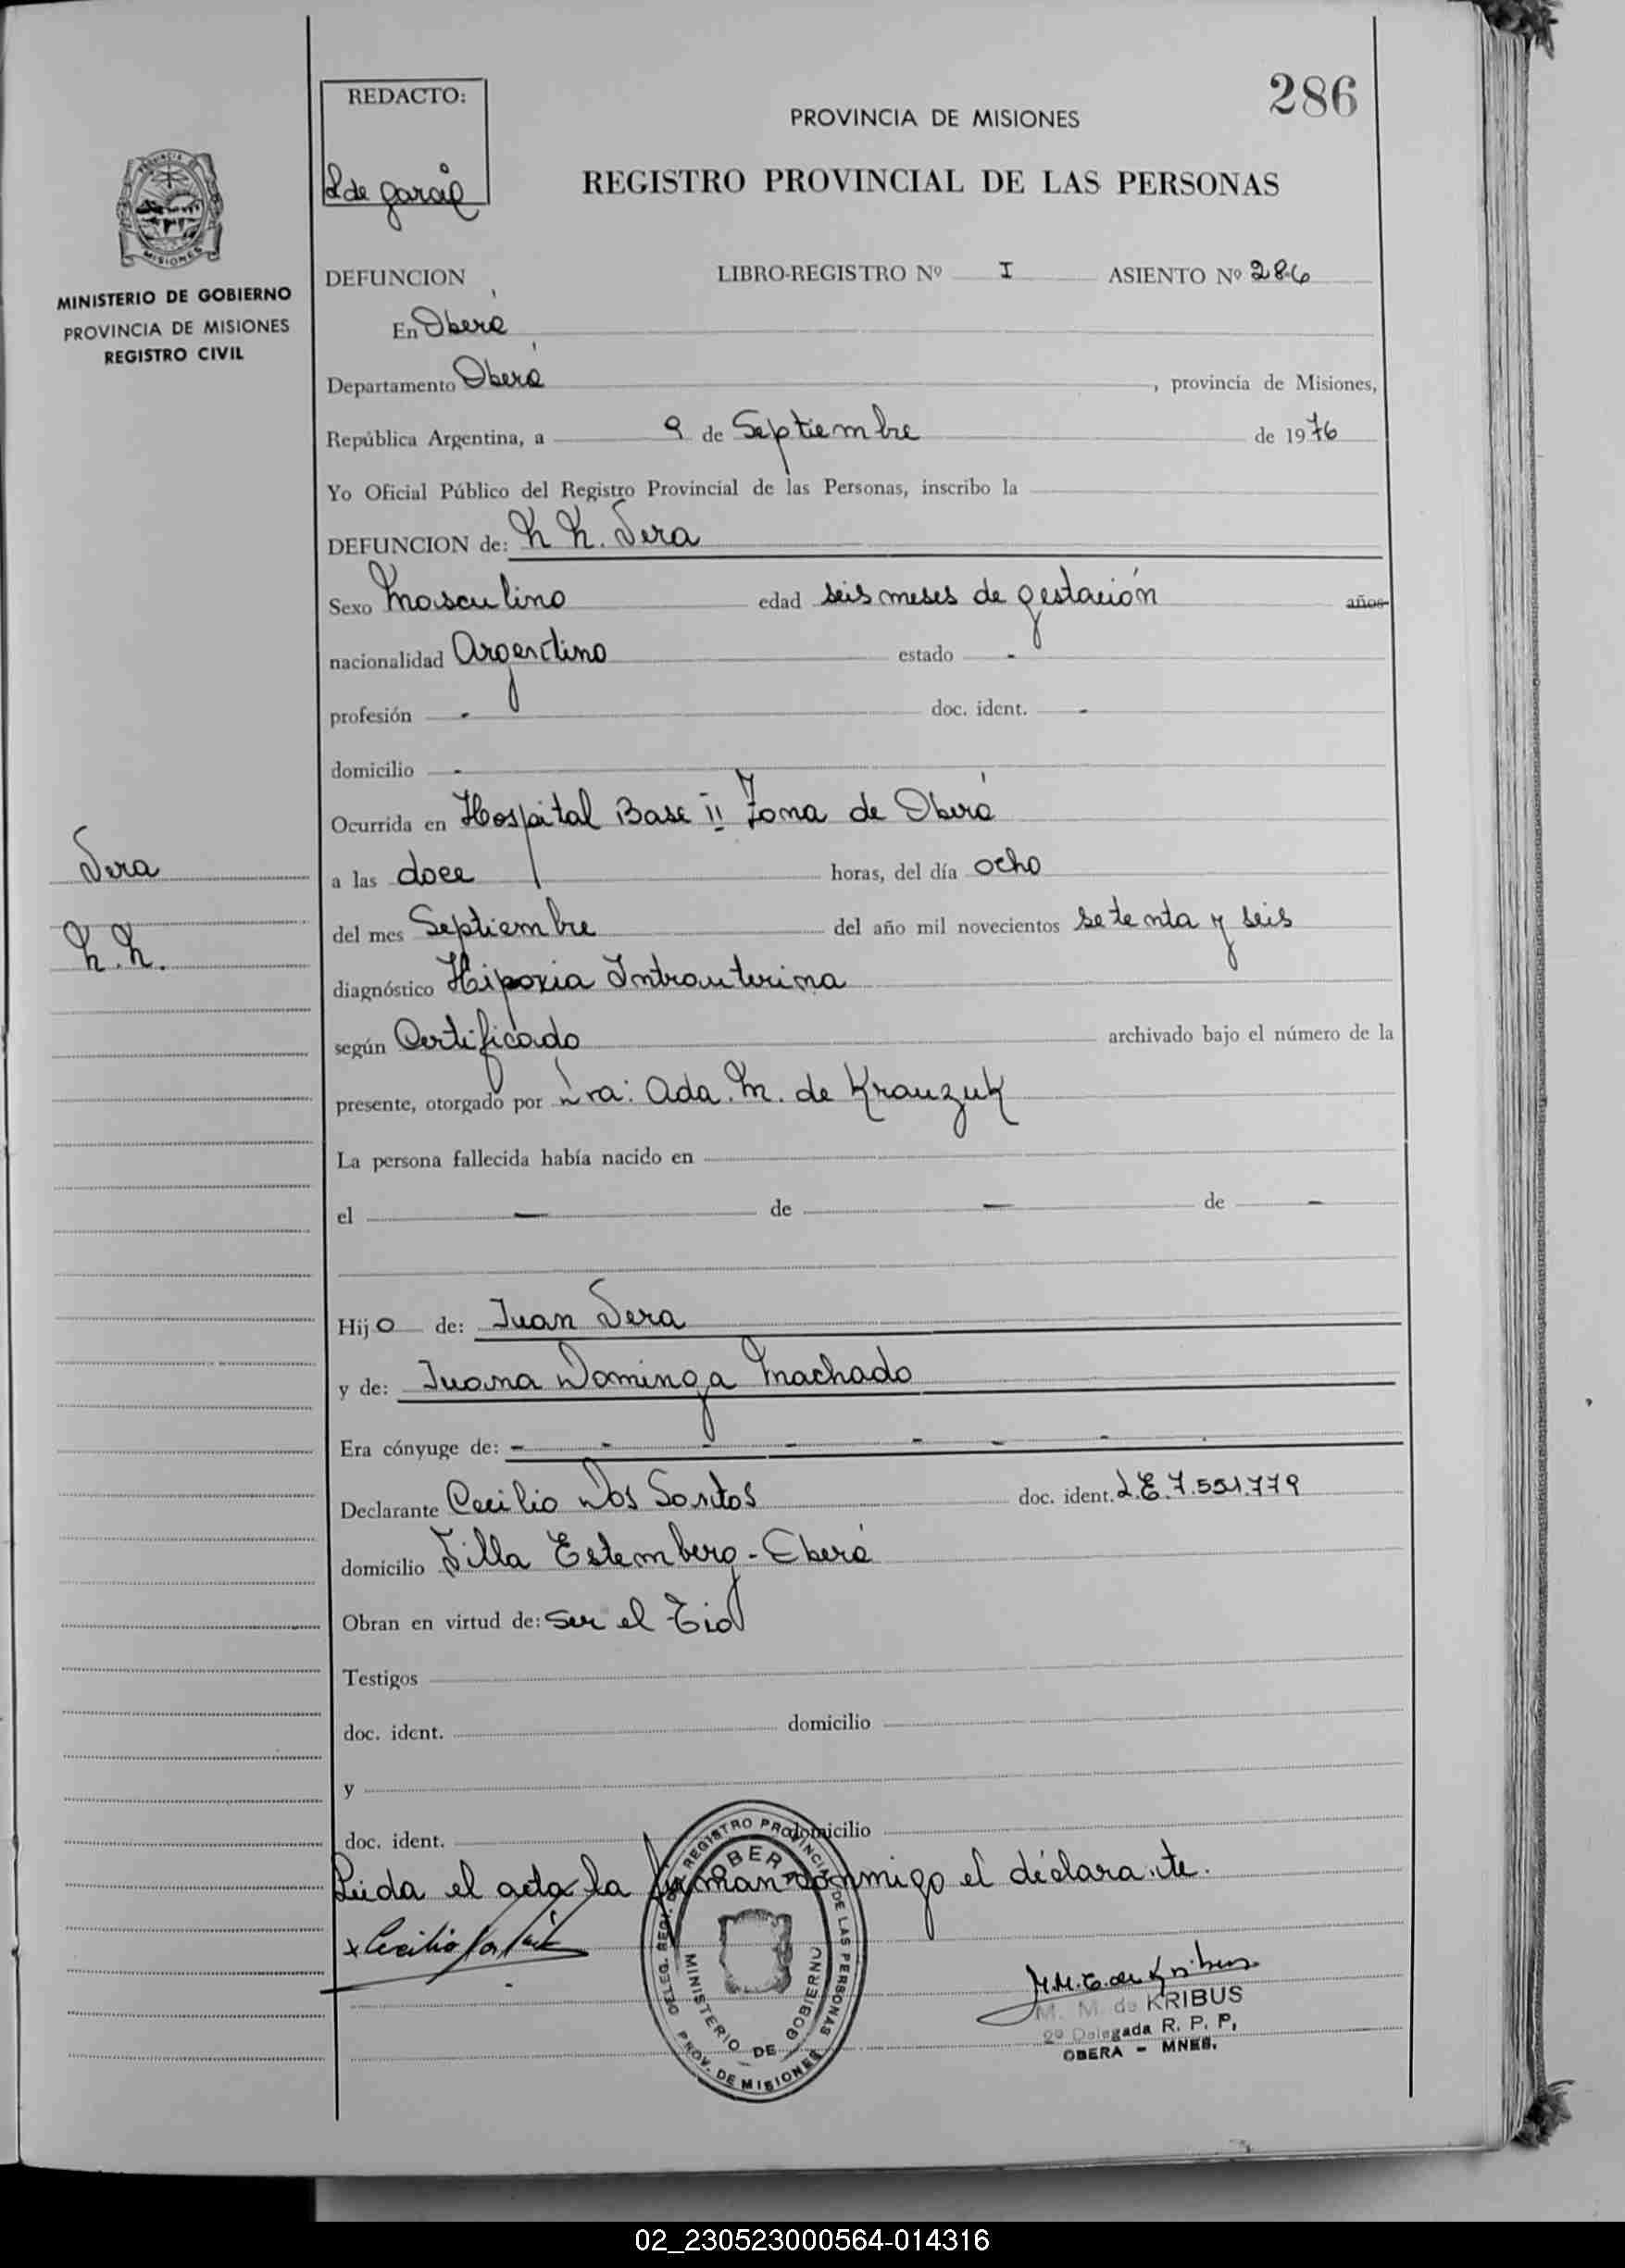 286
REDACTO:
L de Garcia
PROVINCIA DE MISIONES
REGISTRO PROVINCIAL DE LAS PERSONAS
MISIONES
MINISTERIO DE GOBIERNO
PROVINCIA DE MISIONES
REGISTRO CIVIL
DEFUNCION LIBRO-REGISTRO Nº I ASIENTO Nº 286
En Oberá
Departamento Oberá, provincia de Misiones,
República Argentina, a 9 de Septiembre de 1976
Yo Oficial Público del Registro Provincial de las Personas, inscribo la
DEFUNCION de: N N. Vera
Sexo Masculino edad seis meses de gestación años
nacionalidad Argentino estado -
profesión - doc. ident. -
domicilio -
Ocurrida en Hospital Base II Zona de Oberá
Vera
a las doce horas, del día ocho
N. N.
del mes Septiembre del año mil novecientos setenta y seis
diagnóstico Hipoxia Intrauterina
según Certificado archivado bajo el número de la
presente, otorgado por Dra: Ada. M. de Krauzuk
La persona fallecida había nacido en
el — de — de -
Hijo de: Juan Vera
y de: Juana Dominga Machado
Era cónyuge de: - - - - - - - -
Declarante Cecilio Dos Santos doc. ident. L.E. 7.551.779
domicilio Villa Estemberg - Oberá
Obran en virtud de: Ser el Tio
Testigos
doc. ident. domicilio
y
doc. ident. domicilio
Leida el acta la firman conmigo el declarante.
x Cecilio
DELEG. REGISTRO PROVINCIAL DE LAS PERSONAS
OBERA
MINISTERIO DE GOBIERNO
PROV. DE MISIONES
M. M. de KRIBUS
2º Delegada R. P. P,
OBERA - MNES.
02_230523000564-014316